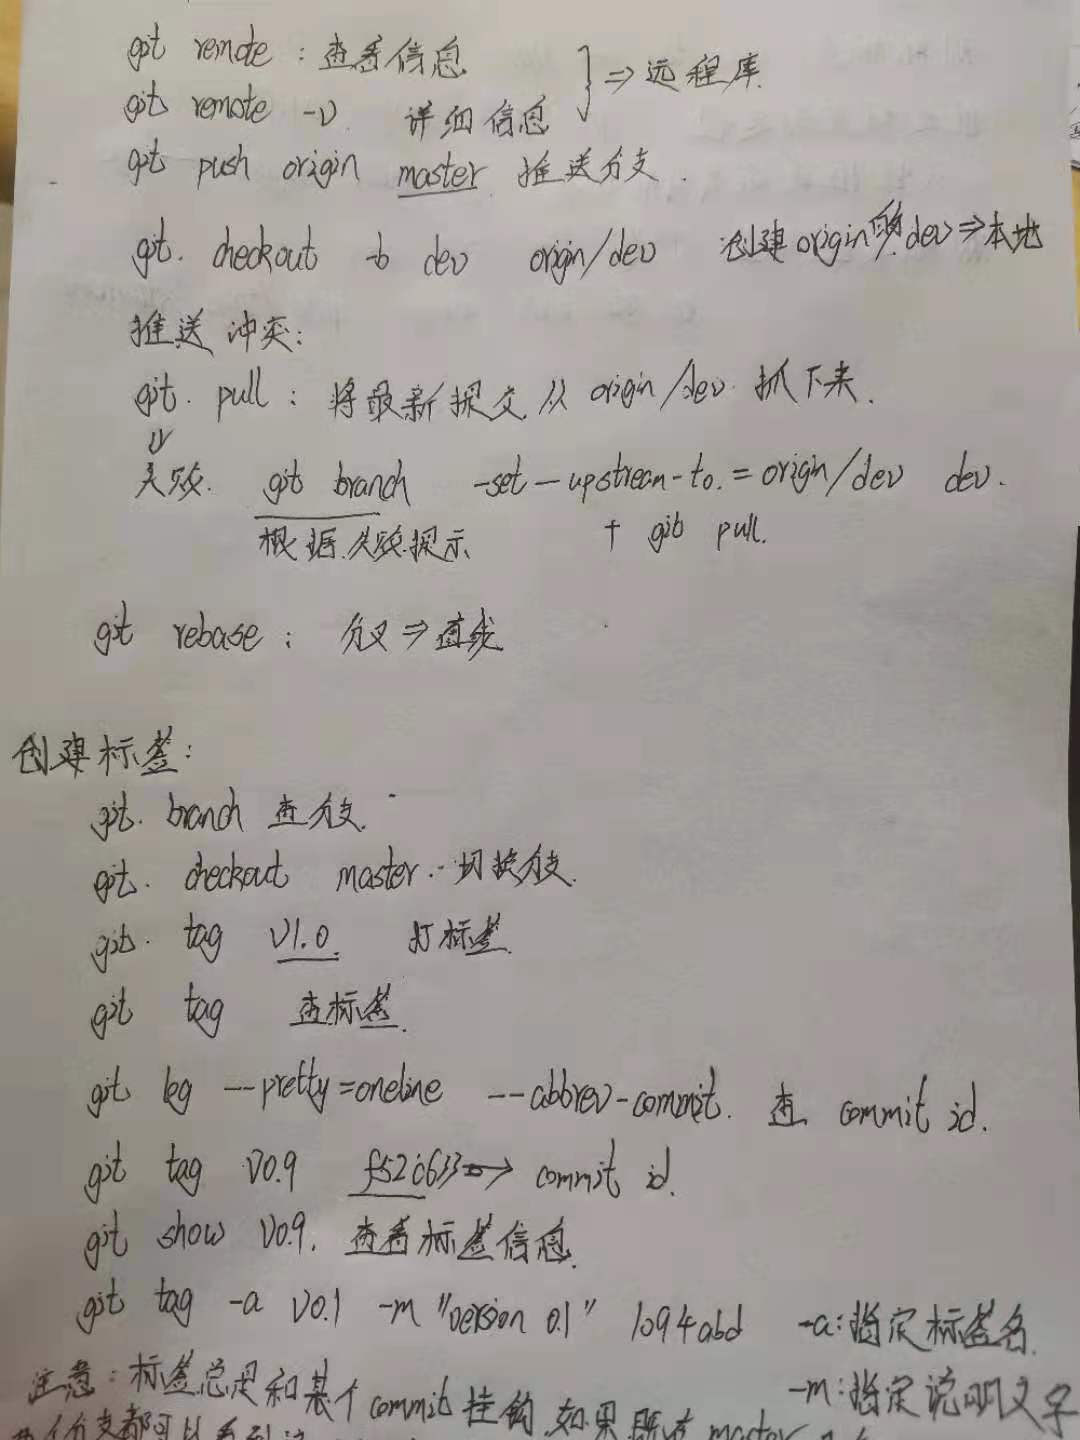 git remote : 查看信息 } ⇒ 远程库
git remote -v 详细信息
git push origin master 推送分支.
git checkout -b dev origin/dev 创建origin的dev⇒本地
推送冲突:
git pull : 将最新提交从 origin/dev 抓下来.
⇓
失败. git branch -set-upstream-to = origin/dev dev.
根据失败提示 + git pull.
git rebase : 分叉 ⇒ 直线
创建标签:
git branch 查分支.
git checkout master 切换分支.
git tag v1.0 打标签.
git tag 查标签.
git log --pretty=oneline --abbrev-commit. 查 commit id.
git tag v0.9 f52c633 → commit id.
git show v0.9. 查看标签信息.
git tag -a v0.1 -m "version 0.1" 1094abd -a:指定标签名.
-m:指定说明文字
注意: 标签总是和某个commit挂钩.如果既在master
分支都可以看到